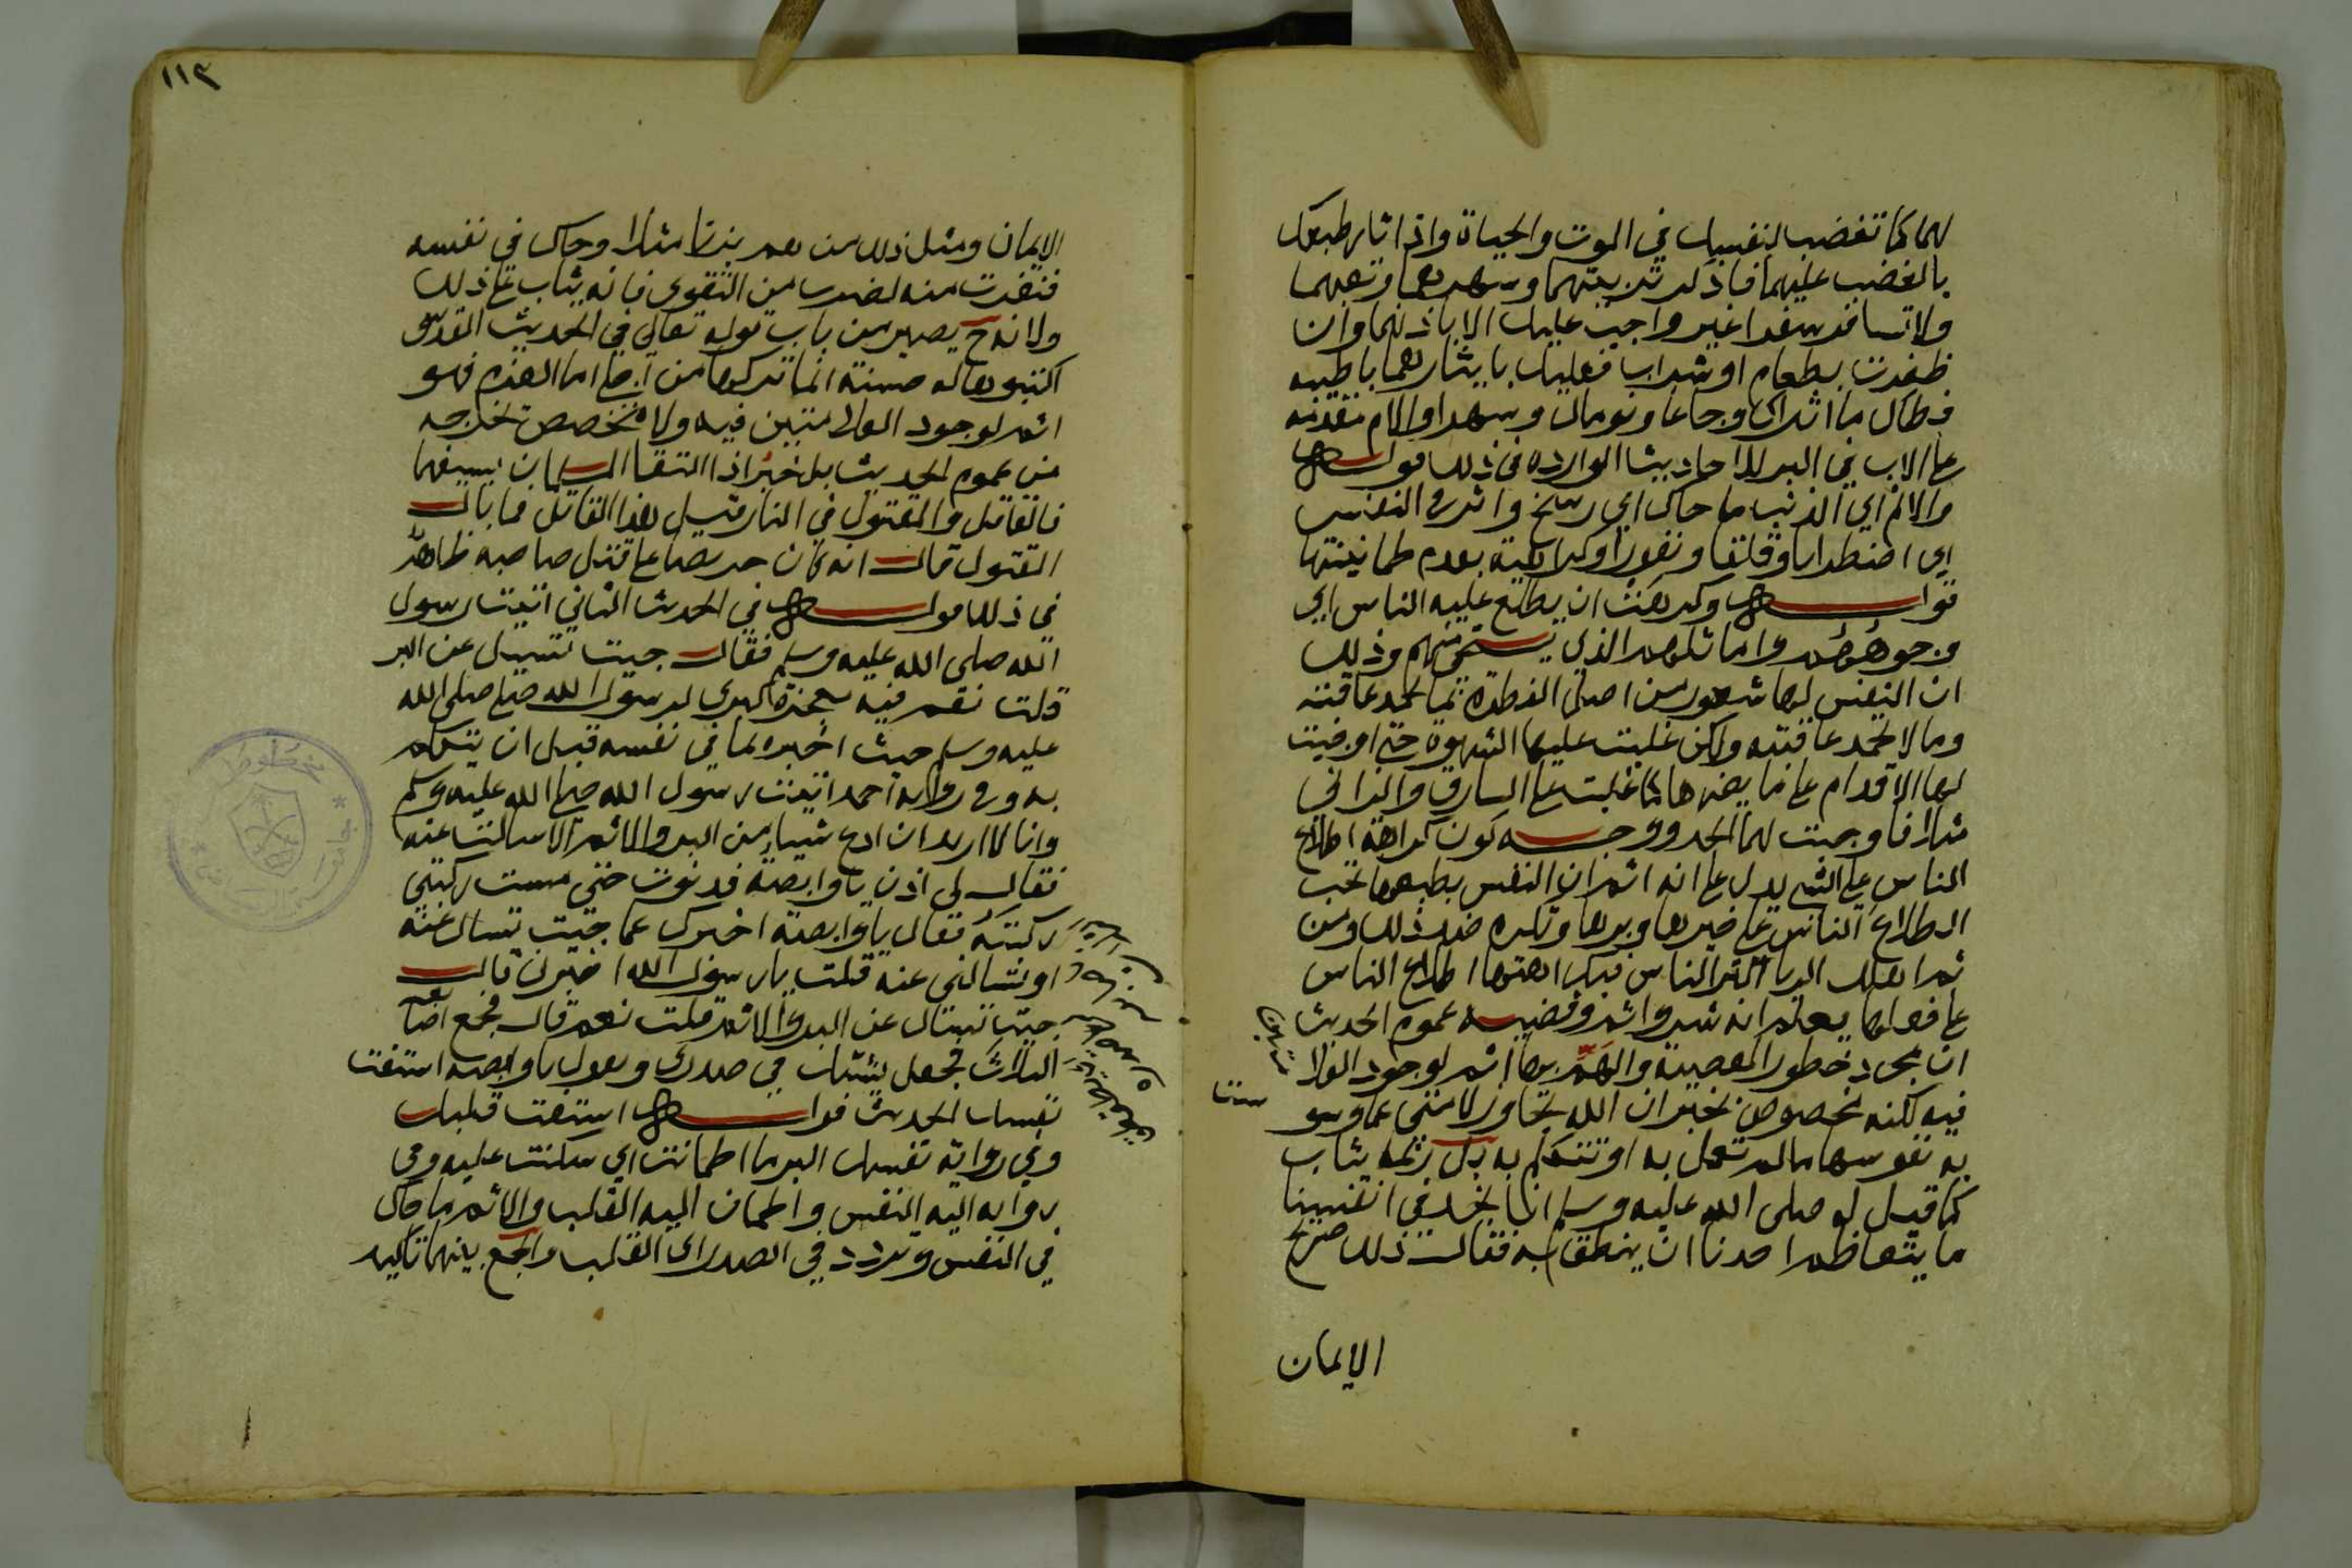 لهما كما تغضب لنفسك في الموت والحياة واذا ثار طبعك
بالغضب عليهما فاذكر تربيتهما وسهرهما وتعبهما
ولا تسافر سفرا غير واجب عليك الا باذنهما وان
ظفرت بطعام او شراب فعليك بايثارهما باطيبه
فطال ما اثراك وجاعا ونومال وسهرا والام مقدمه
على الاب في البر للاحاديث الوارده في ذلك قوله
والاثم اي الذنب ما حاك اي رسخ واثر في النفس
اي اضطرابا وقلقا ونفورا وكراهية بعدم طمانينتها
قوله وكرهت ان يطلع عليه الناس اي
وجوههم واماثلهم الذي يستحى منهم وذلك
ان النفس لها شعور من اصل الفطرة بما تحمد عاقبته
وما لا تحمد عاقبته ولكن غلبت عليها الشهوة حتى اوجبت
لها الاقدام على ما يضرها كما غلبت على السارق والزاني
مثلا فاوجبت لهما الحد ووجه كون كراهة اطلاع
الناس على الشي يدل على انه اثم ان النفس بطبعها تحب
اطلاع الناس على خيرها وبرها وتكره ضد ذلك ومن
ثم اهلك الريا اكثر الناس فبكراهتها اطلاع الناس
على فعلها يعلم انه شر واثم وقضيه عموم الحديث
ان مجرد خطور المعصية والهم بها اثم لوجود
فيه لكنه مخصوص بخبر ان الله تجاوز لامتي عما وسوست
به نفوسها ما لم تعمل به او تتكلم به بل ربما يثاب
كما قيل له صلى الله عليه وسلم انا نجد في انفسنا
ما يتعاظم احدنا ان ينطق به فقال ذلك صريح
الايمان
١١٣
الايمان ومثل ذلك من هم بزنا مثلا وحاك في نفسه
فنفرت منه لضرب من التقوى فانه يثاب على ذلك
ولانه ح يصير من باب قوله تعالى في الحديث القدسي
اكتبوها له حسنة انما تركها من اجلي اما العزم فهو
اثم لوجود فيه ولا مخصص تخرجه
من عموم الحديث بل خبر اذا التقا المسلمان بسيفهما
فالقاتل والمقتول في النار قيل هذا القاتل فما بال
المقتول قال انه كان حريصا على قتل صاحبه ظاهر
في ذلك قوله في الحديث الثاني اتيت رسول
الله صلى الله عليه وسلم فقال جيت تسيل عن البر
قلت نعم فيه معجزة كبرى لرسول الله صلى الله
عليه وسلم حيث اخبره بما في نفسه قبل ان يتكلم
به وفي رواية احمد اتيت رسول الله صلى الله عليه وسلم
وانا لا اريد ان ادع شيا من البر والاثم الا سالت عنه
فقال لي اذن يا وابصة فدنوت حتى مست ركبتي
ركبته فقال يا وابصة اخبرك عما جيت تسال عنه
او تسالني عنه قلت يا رسول الله اخبرني قال
جيت تسال عن البر والاثم قلت نعم قال فجمع اصابعه
الثلاث فجعل ينكت في صدري ويقول يا وابصه استفت
نفسك الحديث قوله استفت قلبك
وفي رواية نفسك البر ما اطمانت اي سكنت عليه وفي
رواية اليه النفس واطمان اليه القلب والاثم ما حاك
في النفس وتردد في الصدر اي القلب والجمع بينهما تاكيد